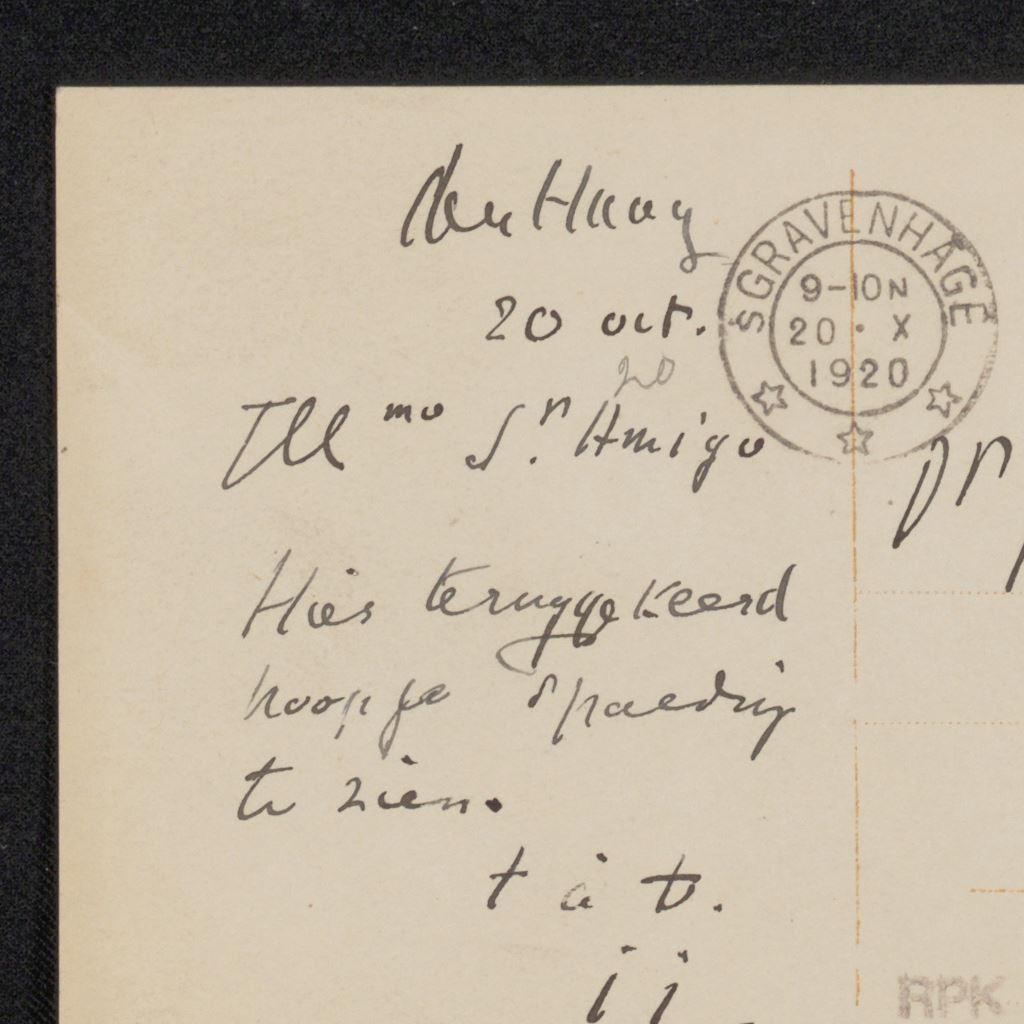 Den Haag
20 oct.
20
Ill mo Sr. Amigo
Hier teruggekeerd
hoop je spoedig
te zien.
t à t.
'SGRAVENHAGE
9-10N
20 · X
1920
RPK